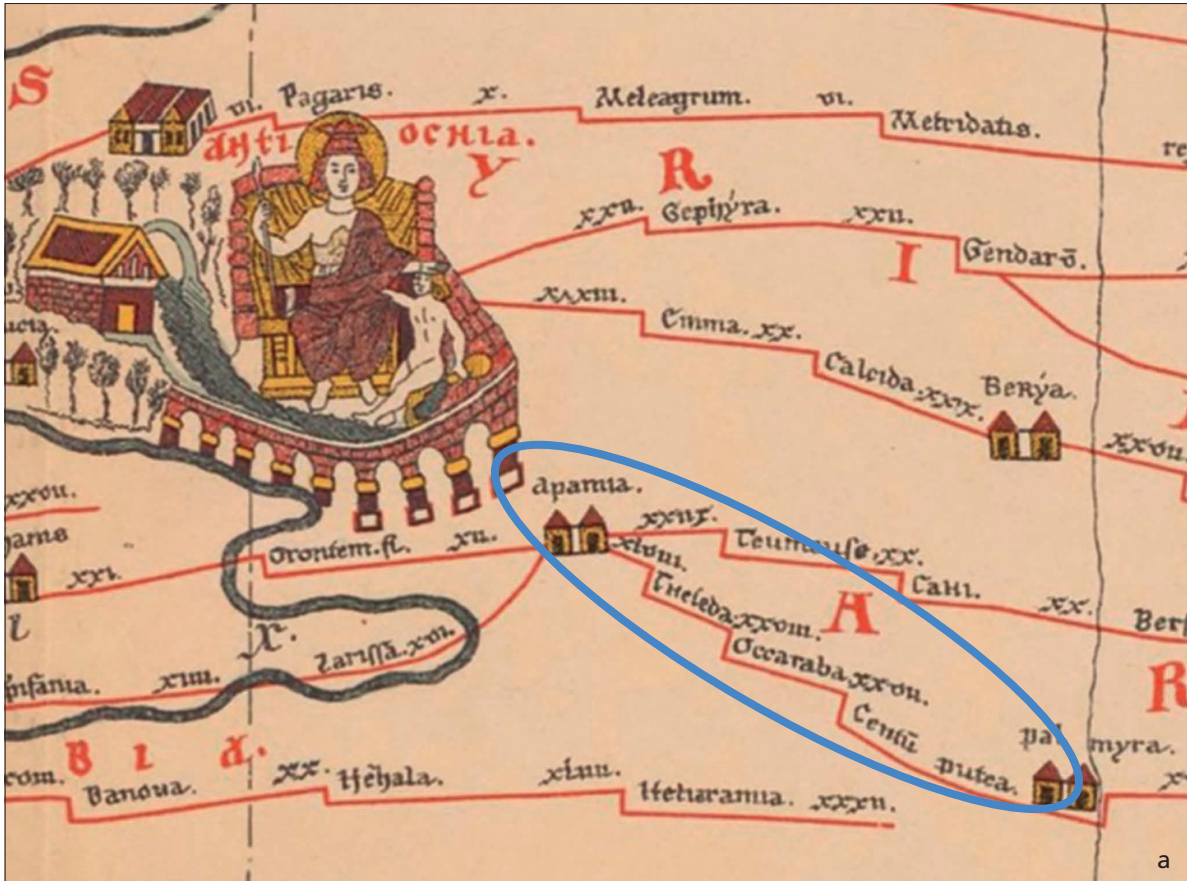 S
vi. Pagaris. x. Meleagrum. vi. Metridatis.
Anti ochia.
Y R I A
xxii. Gephyra. xxii. Gendarō.
xxxiii. Emma. xx. Calcida. xxix. Berya. xxvii.
apamia.
xxvii.
Orontem. fl. xii.
xxi.
Teumeuse. xx. Cahi. xx.
xlviii. Theleda. xxviii. Occaraba. xxvii. Centū putea.
palmyra.
xiiii. Larissa. xvi.
R
B I A.
com. Danoua. xx. Hehala. xlviii. Heturamia. xxxii.
a